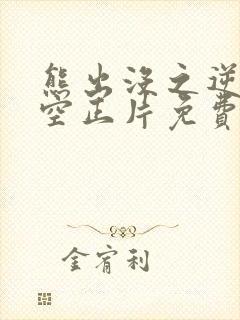 熊出没之逆
空正片免費
金宥利